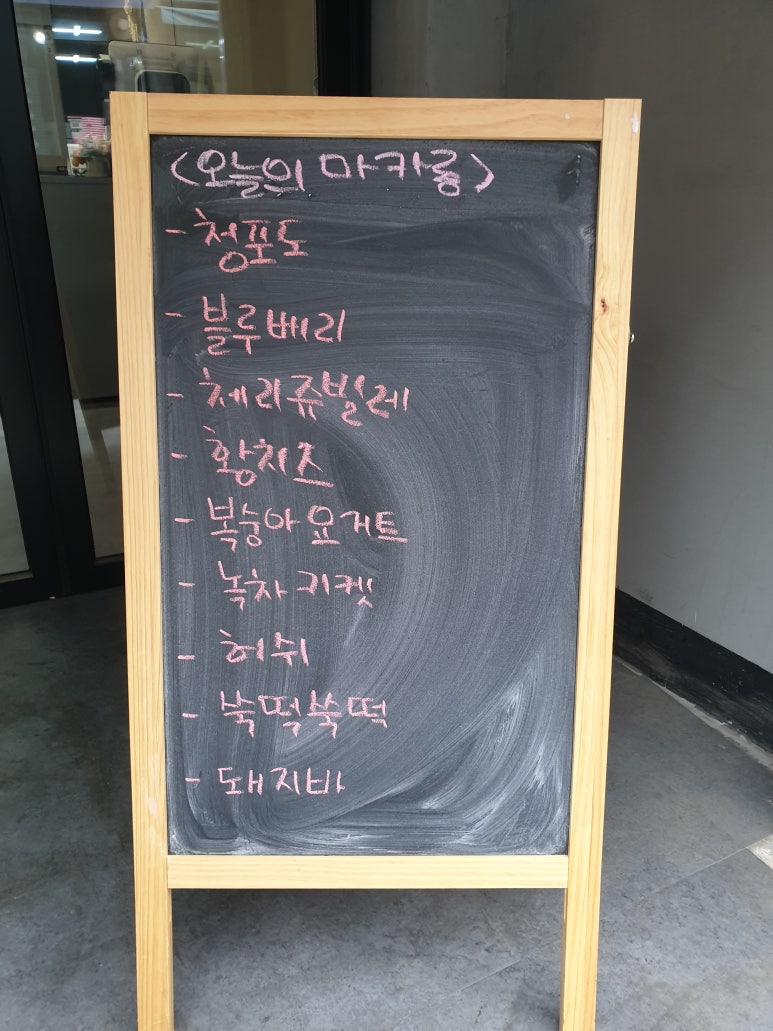 <오늘의 마카롱>
- 청포도
- 블루베리
- 체리쥬빌레
- 황치즈
- 복숭아 요거트
- 녹차 키켓
- 허쉬
- 쑥떡쑥떡
- 돼지바